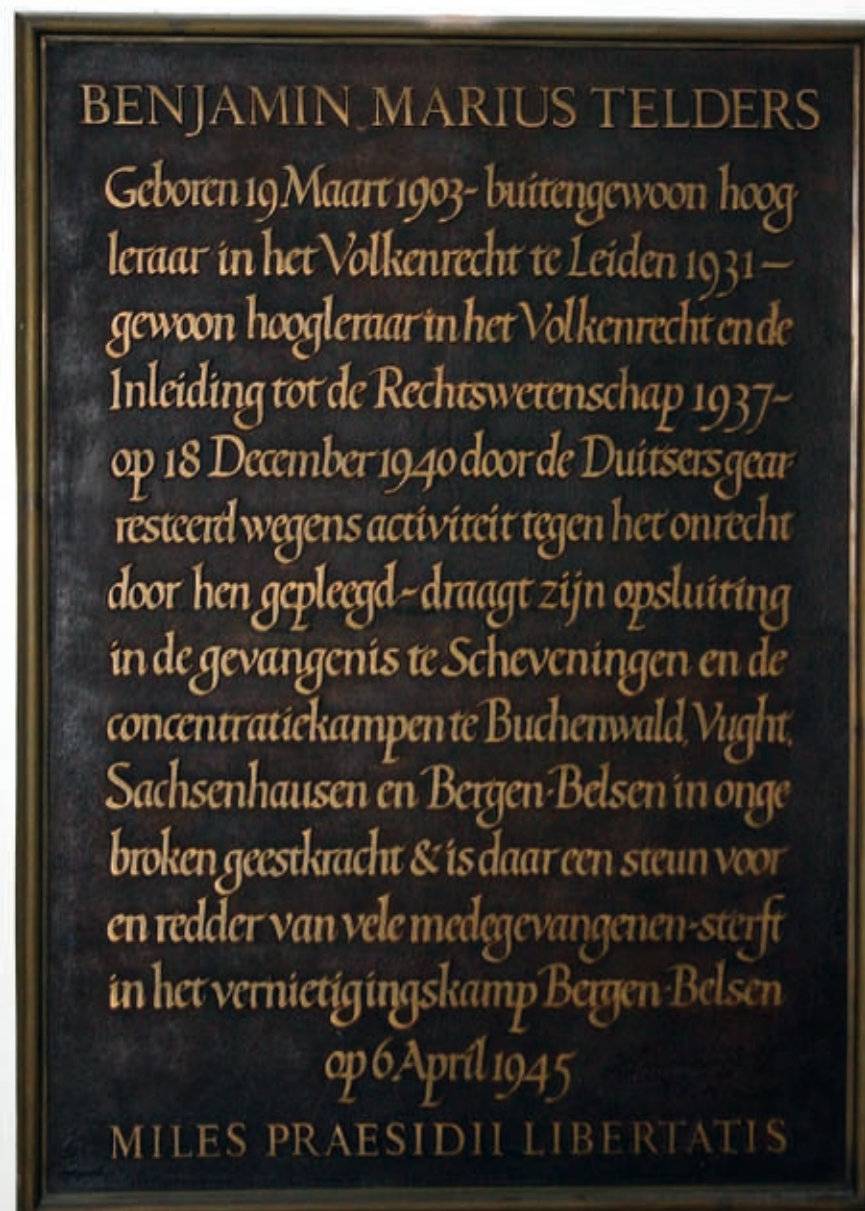 BENJAMIN MARIUS TELDERS
Geboren 19 Maart 1903 - buitengewoon hoog-
leraar in het Volkenrecht te Leiden 1931 –
gewoon hoogleraar in het Volkenrecht en de
Inleiding tot de Rechtswetenschap 1937 -
op 18 December 1940 door de Duitsers gear-
resteerd wegens activiteit tegen het onrecht
door hen gepleegd - draagt zijn opsluiting
in de gevangenis te Scheveningen en de
concentratiekampen te Buchenwald, Vught,
Sachsenhausen en Bergen-Belsen in onge
broken geestkracht & is daar een steun voor
en redder van vele medegevangenen - sterft
in het vernietigingskamp Bergen-Belsen
op 6 April 1945
MILES PRAESIDII LIBERTATIS